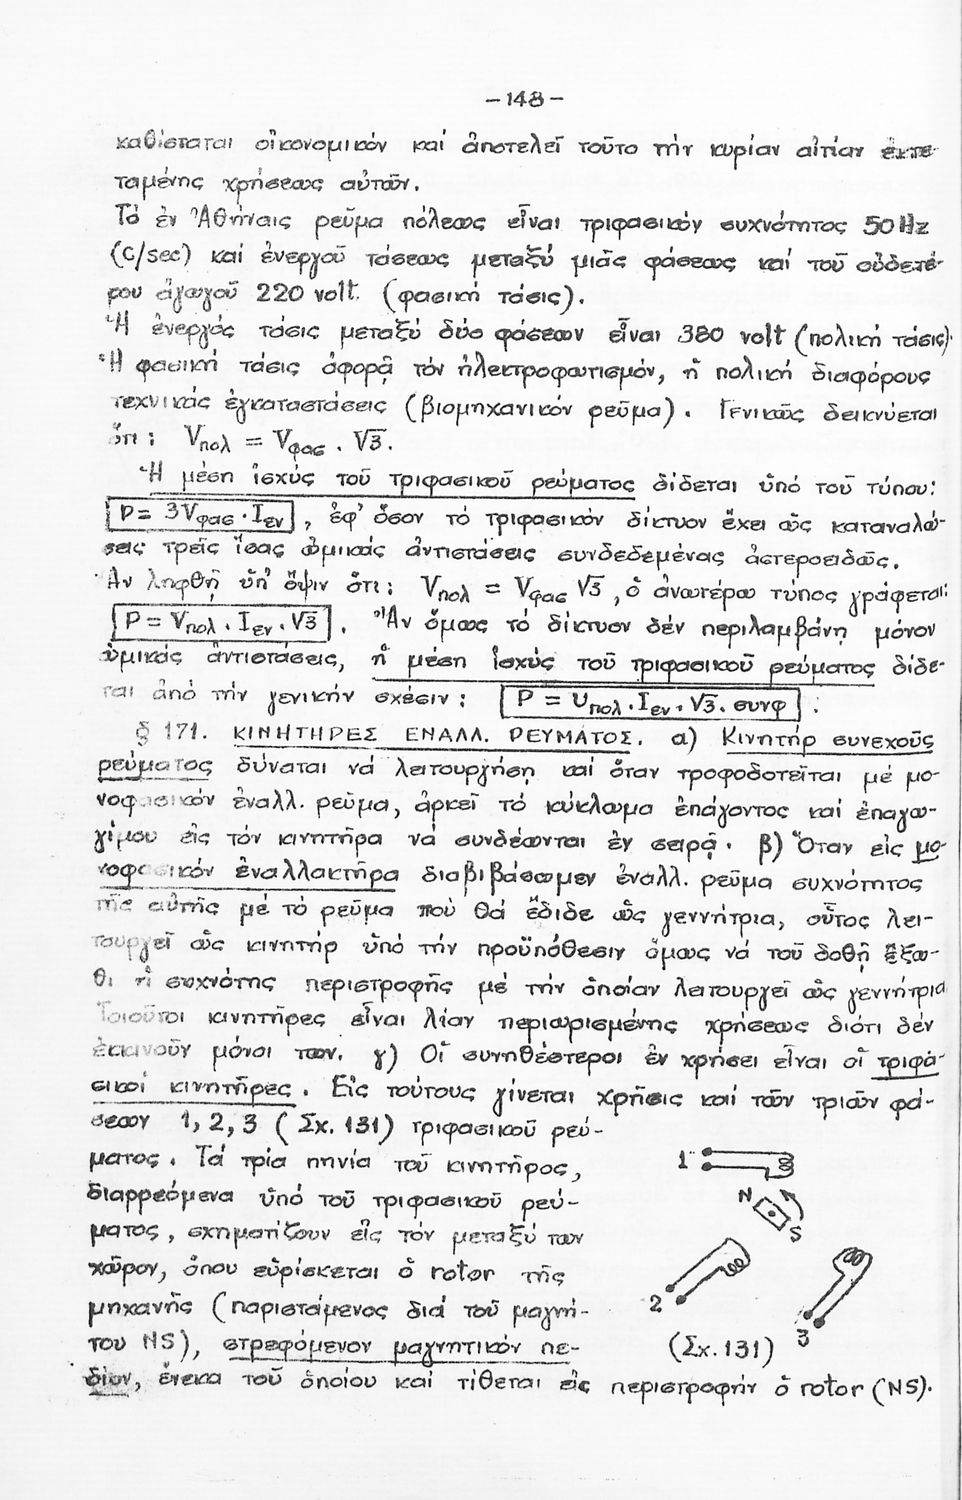 -148-
καθίσταται οἰκονομικόν καί ἀποτελεῖ τοῦτο τήν κυρίαν αἰτίαν ἐκτε-
ταμένης χρήσεως αὐτῶν.
Τό ἐν Ἀθήναις ρεῦμα πόλεως εἶναι τριφασικόν συχνότητος 50 Hz
(c/sec) καί ἐνεργοῦ τάσεως μεταξύ μιᾶς φάσεως καί τοῦ οὐδετέ-
ρου ἀγωγοῦ 220 volt. (φασική τάσις).
Ἡ ἐνεργός τάσις μεταξύ δύο φάσεων εἶναι 380 volt (πολική τάσις).
Ἡ φασική τάσις ἀφορᾷ τόν ἠλεκτροφωτισμόν, ἡ πολική διαφόρους
τεχνικάς ἐγκαταστάσεις (βιομηχανικόν ρεῦμα). Γενικῶς δεικνύεται
ὅτι: Vπολ = Vφας . √3.
Ἡ μέση ἰσχύς τοῦ τριφασικοῦ ρεύματος δίδεται ὑπό τοῦ τύπου:
P= 3Vφας . Iεν , ἐφ' ὅσον τό τριφασικόν δίκτυον ἔχει ὡς καταναλώ-
σεις τρεῖς ἴσας ὠμικάς ἀντιστάσεις συνδεδεμένας ἀστεροειδῶς.
Ἄν ληφθῇ ὑπ' ὄψιν ὅτι: Vπολ = Vφας √3 , ὁ ἀνωτέρω τύπος γράφεται:
P = Vπολ . Iεν . √3 . Ἄν ὅμως τό δίκτυον δέν περιλαμβάνῃ μόνον
ὠμικάς ἀντιστάσεις, ἡ μέση ἰσχύς τοῦ τριφασικοῦ ρεύματος δίδε-
ται ἀπό τήν γενικήν σχέσιν: P = Uπολ . Iεν . √3 . συνφ .
§ 171. ΚΙΝΗΤΗΡΕΣ ΕΝΑΛΛ. ΡΕΥΜΑΤΟΣ. α) Κινητήρ συνεχοῦς
ρεύματος δύναται νά λειτουργήσῃ καί ὅταν τροφοδοτεῖται μέ μο-
νοφασικόν ἐναλλ. ρεῦμα, ἀρκεῖ τό κύκλωμα ἐπάγοντος καί ἐπαγω-
γίμου εἰς τόν κινητῆρα νά συνδέωνται ἐν σειρᾷ. β) Ὅταν εἰς μο-
νοφασικόν ἐναλλακτῆρα διαβιβάσωμεν ἐναλλ. ρεῦμα συχνότητος
τῆς αὐτῆς μέ τό ρεῦμα πού θά ἔδιδε ὡς γεννήτρια, οὗτος λει-
τουργεῖ ὡς κινητήρ ὑπό τήν προϋπόθεσιν ὅμως νά τοῦ δοθῇ ἔξω-
θι ἡ συχνότης περιστροφῆς μέ τήν ὁποίαν λειτουργεῖ ὡς γεννήτρια
Τοιοῦτοι κινητῆρες εἶναι λίαν περιωρισμένης χρήσεως διότι δέν
ἐκκινοῦν μόνοι των. γ) Οἱ συνηθέστεροι ἐν χρήσει εἶναι οἱ τριφα-
σικοί κινητῆρες. Εἰς τούτους γίνεται χρῆσις καί τῶν τριῶν φά-
σεων 1, 2, 3 (Σχ. 131) τριφασικοῦ ρεύ-
ματος. Τά τρία πηνία τοῦ κινητῆρος,
διαρρεόμενα ὑπό τοῦ τριφασικοῦ ρεύ-
ματος, σχηματίζουν εἰς τόν μεταξύ των
χῶρον, ὅπου εὑρίσκεται ὁ rotor τῆς
μηχανῆς (παριστάμενος διά τοῦ μαγνή-
του NS), στρεφόμενον μαγνητικόν πε-
δίον, ἕνεκα τοῦ ὁποίου καί τίθεται εἰς περιστροφήν ὁ rotor (NS).
1
N
S
2
3
(Σχ. 131)